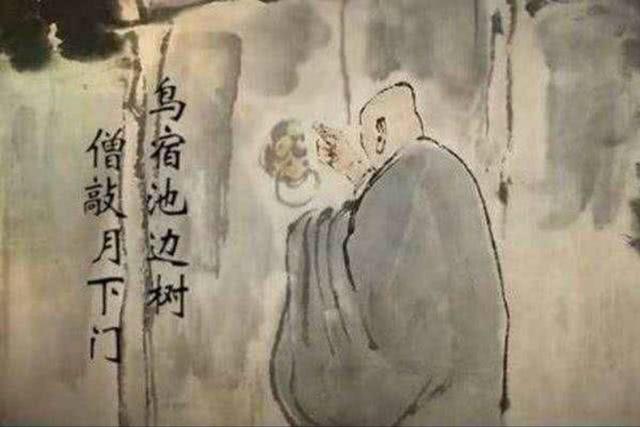 鸟宿池边树
僧敲月下门